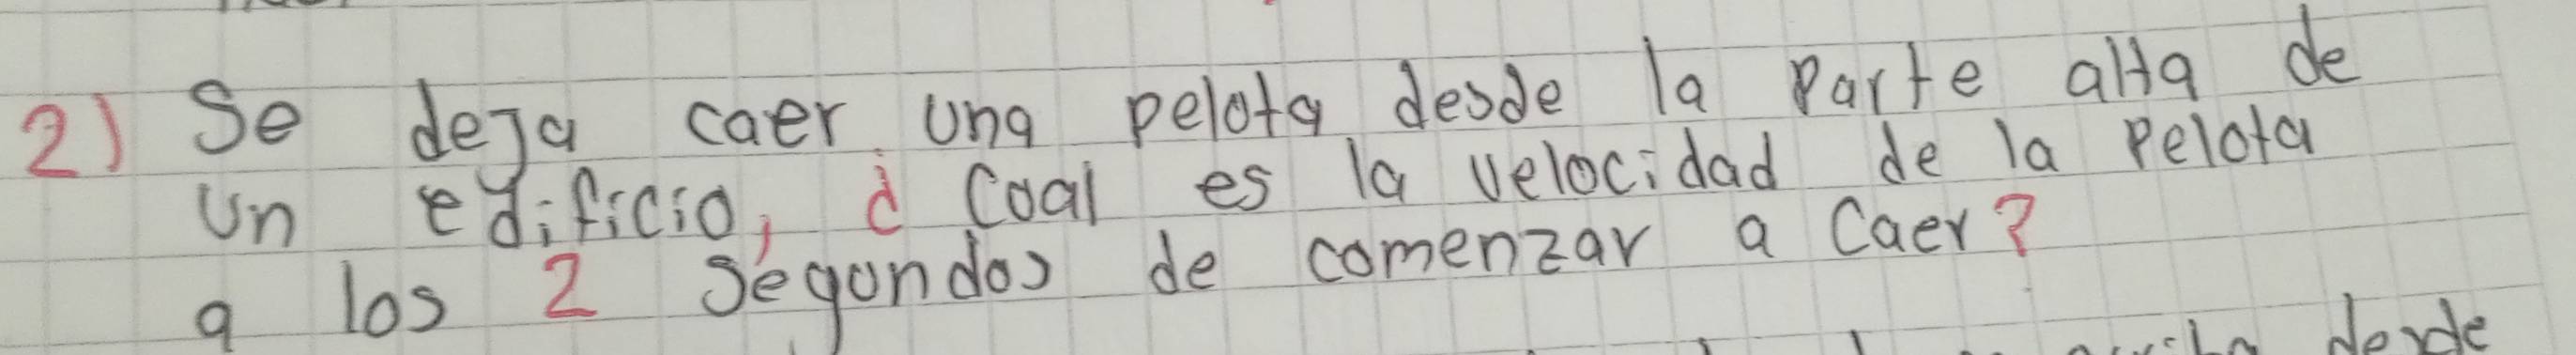 2) Se deja caer una pelota desde la parte alta de
un edificio, ¿ Coal es la velocidad de la pelota
a los 2 segundos de comenzar a caer?
desde